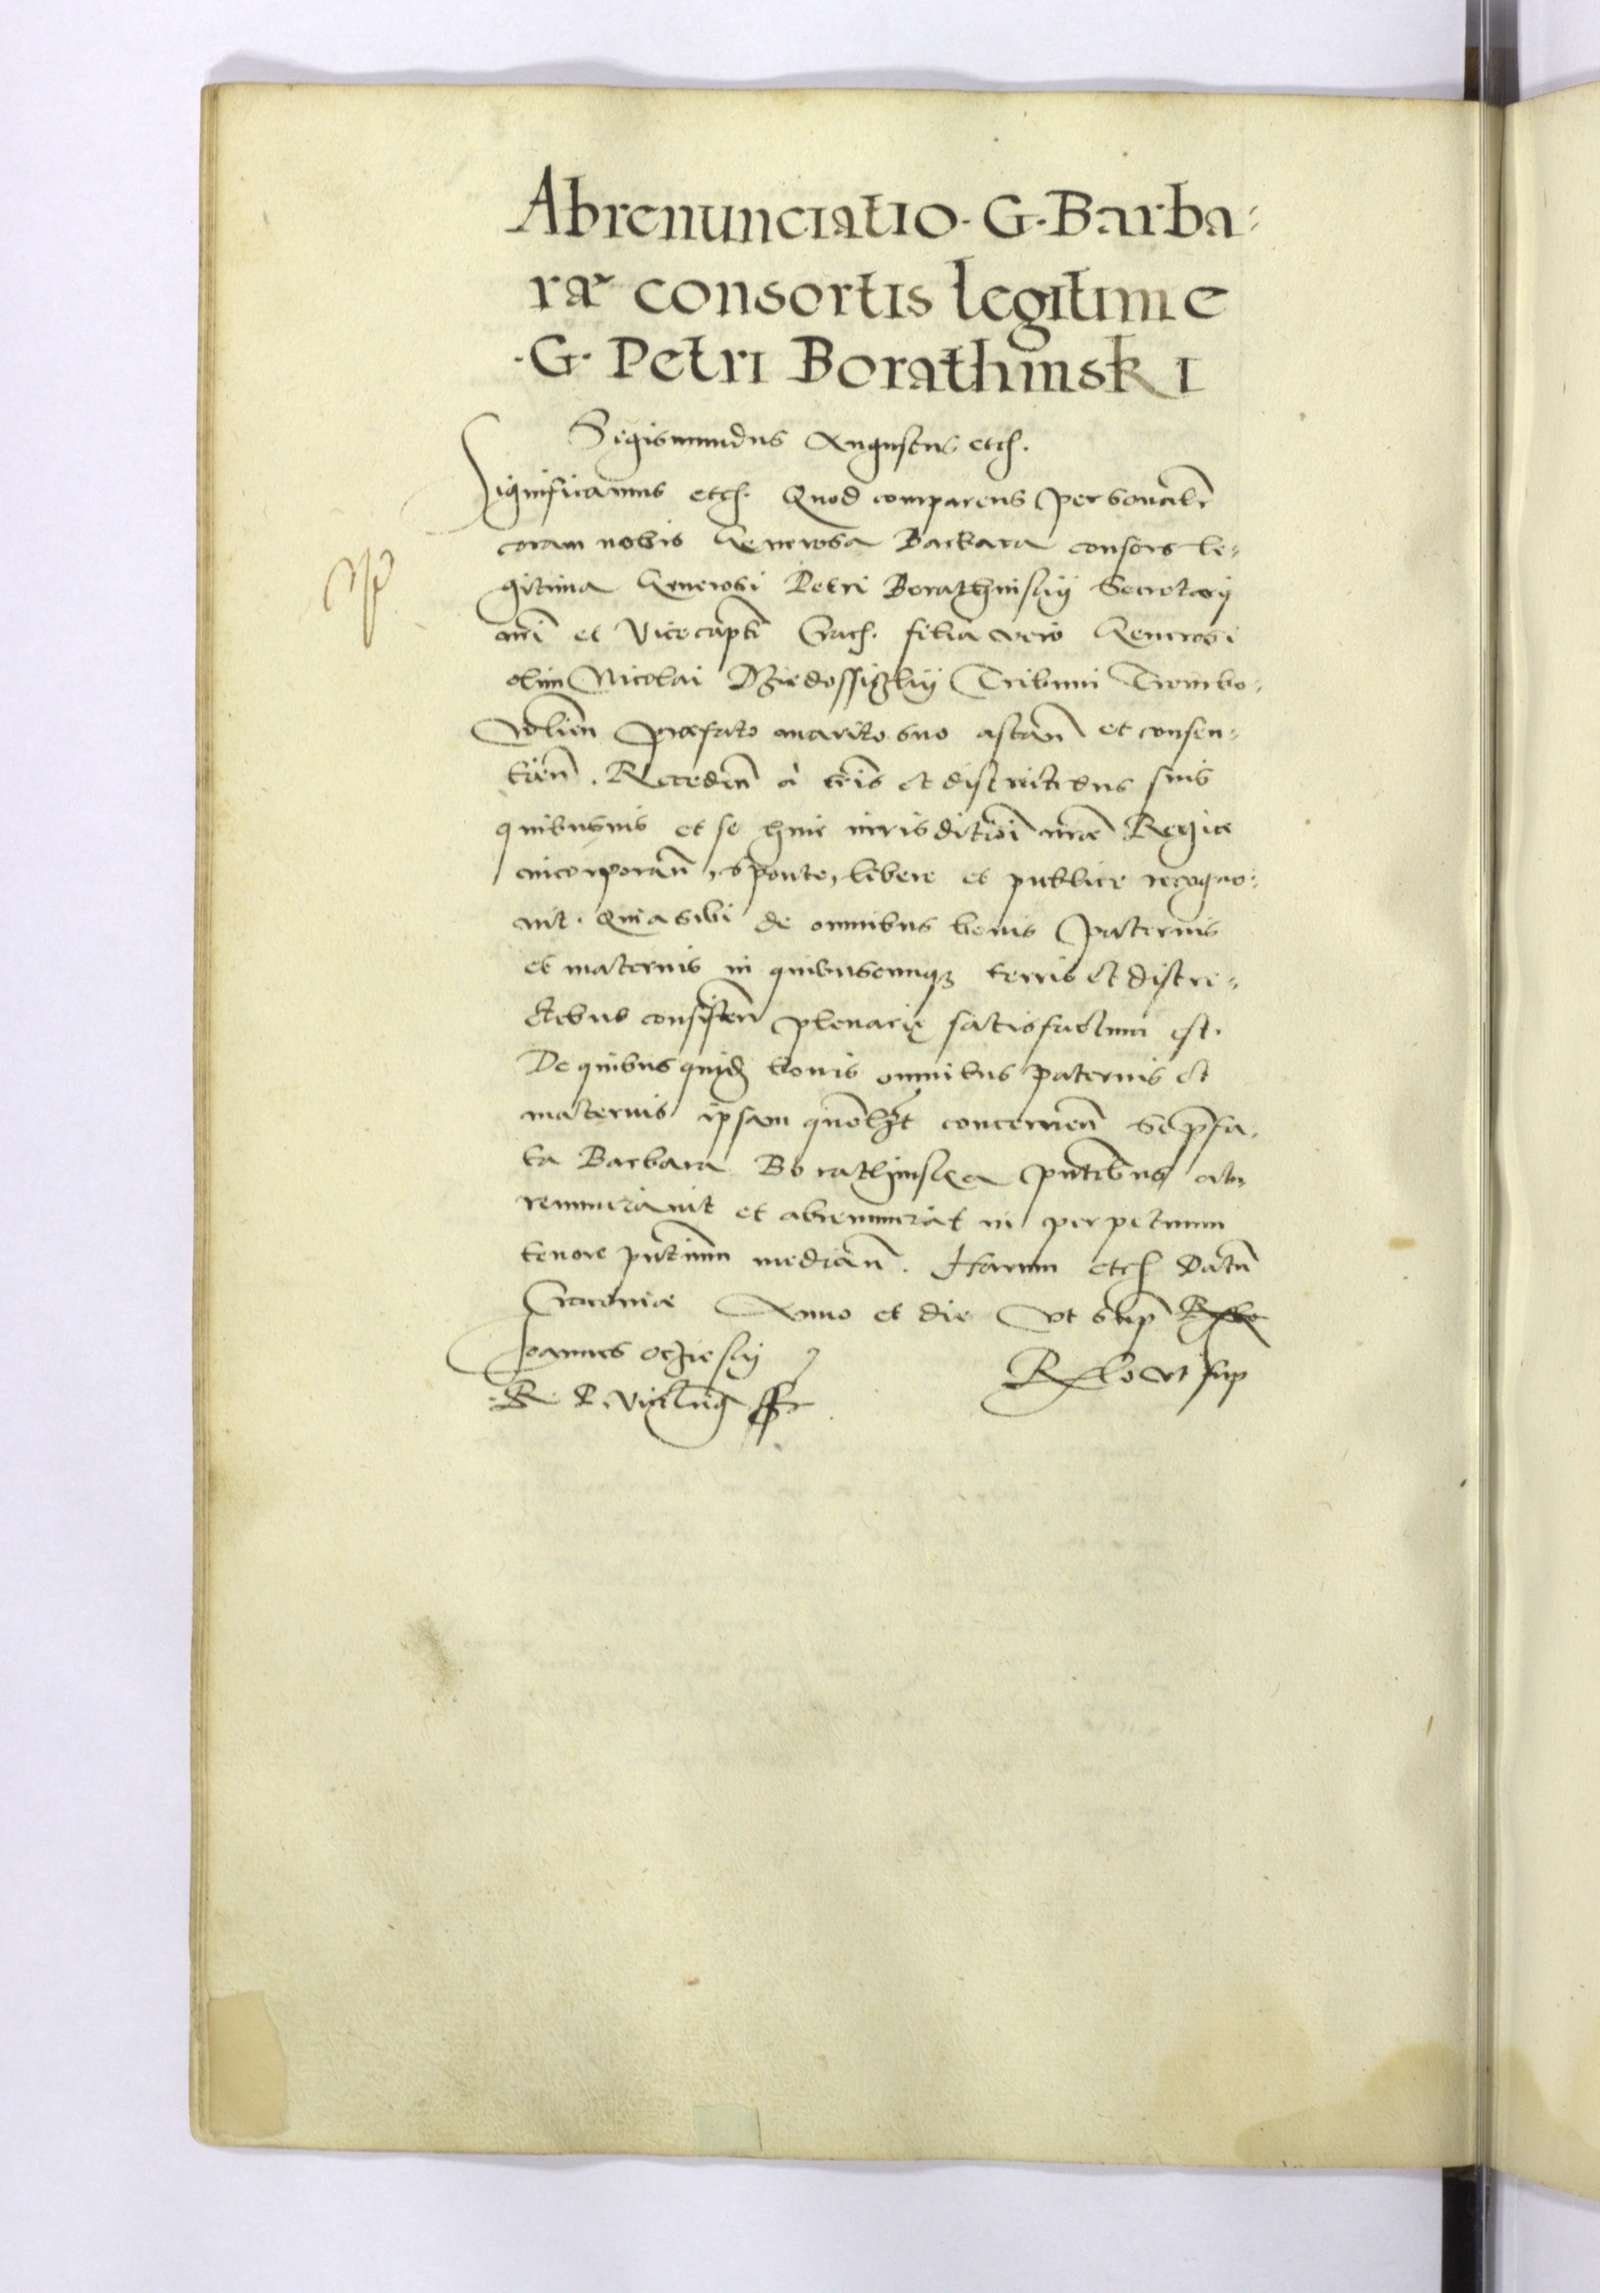 Abrenunciatio · G · Barba=
ræ consortis legitime
· G · Petri Borathinski
Sigismundus Augustus etc.
Significamus etc. Quod comparens personalr
coram nobis Generosa Barbara consors le=
gitima Generosi Petri Borathinskij Secretarij
nri et Vicecaptī Crac. filia vero Generosi
olim Nicolai Dziedossiczkij Tribuni Trembo=
wlien̄ præfato marito suo astan̄ et consen=
tien̄. Receden̄ à tris et districtibus suis
quibusuis et se huic iurisditioni nræ Regiæ
incorporan̄, sponte, libere et publice recogno=
uit. Quia sibi de omnibus bonis paternis
et maternis in quibuscunq; terris et distri=
ctibus consisten̄ plenarie satisfactum est.
De quibus quidē bonis omnibus paternis et
maternis ipsam quōlꝫt concernen̄ sepfa=
ta Barbara Borathinska pntibus abre
renunciauit et abrenunciat in perpetuum
tenore pntium median̄. Harum etc Datū
Cracouiæ Anno et die vt supˉ
Joannes Oczieskij
R. P. Vicecancs sst
Rlo vt sup